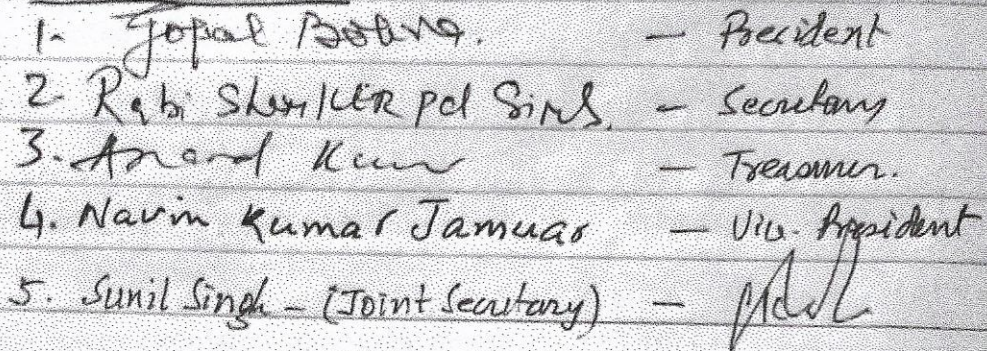 1. Gopal Bohra. - Precident
2 Rabi ShanKER pd Sinh. - Secretary
3. Anand Kumar - Treasurer.
4. Navin Kumar Jamuar - Vice. President
5. Sunil Singh - (Joint Secretary) -